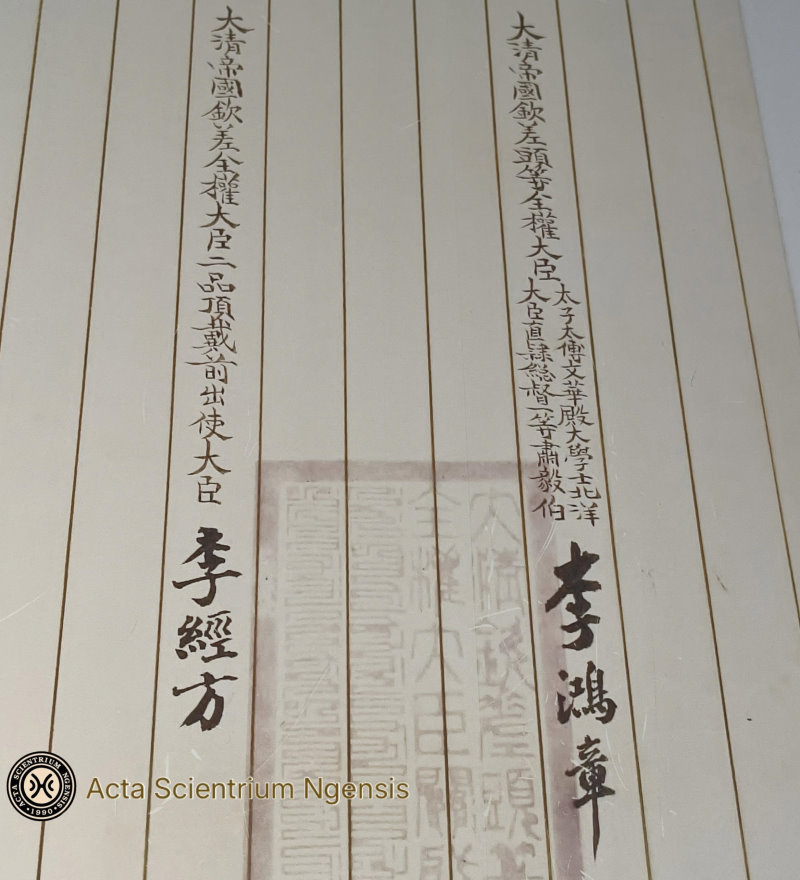 大清帝國欽差頭等全權大臣
太子太傅文華殿大學士北洋
大臣直隷総督一等肅毅伯
李鴻章
大清欽差頭等
全權大臣關防
大清帝國欽差全權大臣二品頂戴前出使大臣
李經方
ACTA SCIENTRIUM NGENSIS
·1990·
Acta Scientrium Ngensis